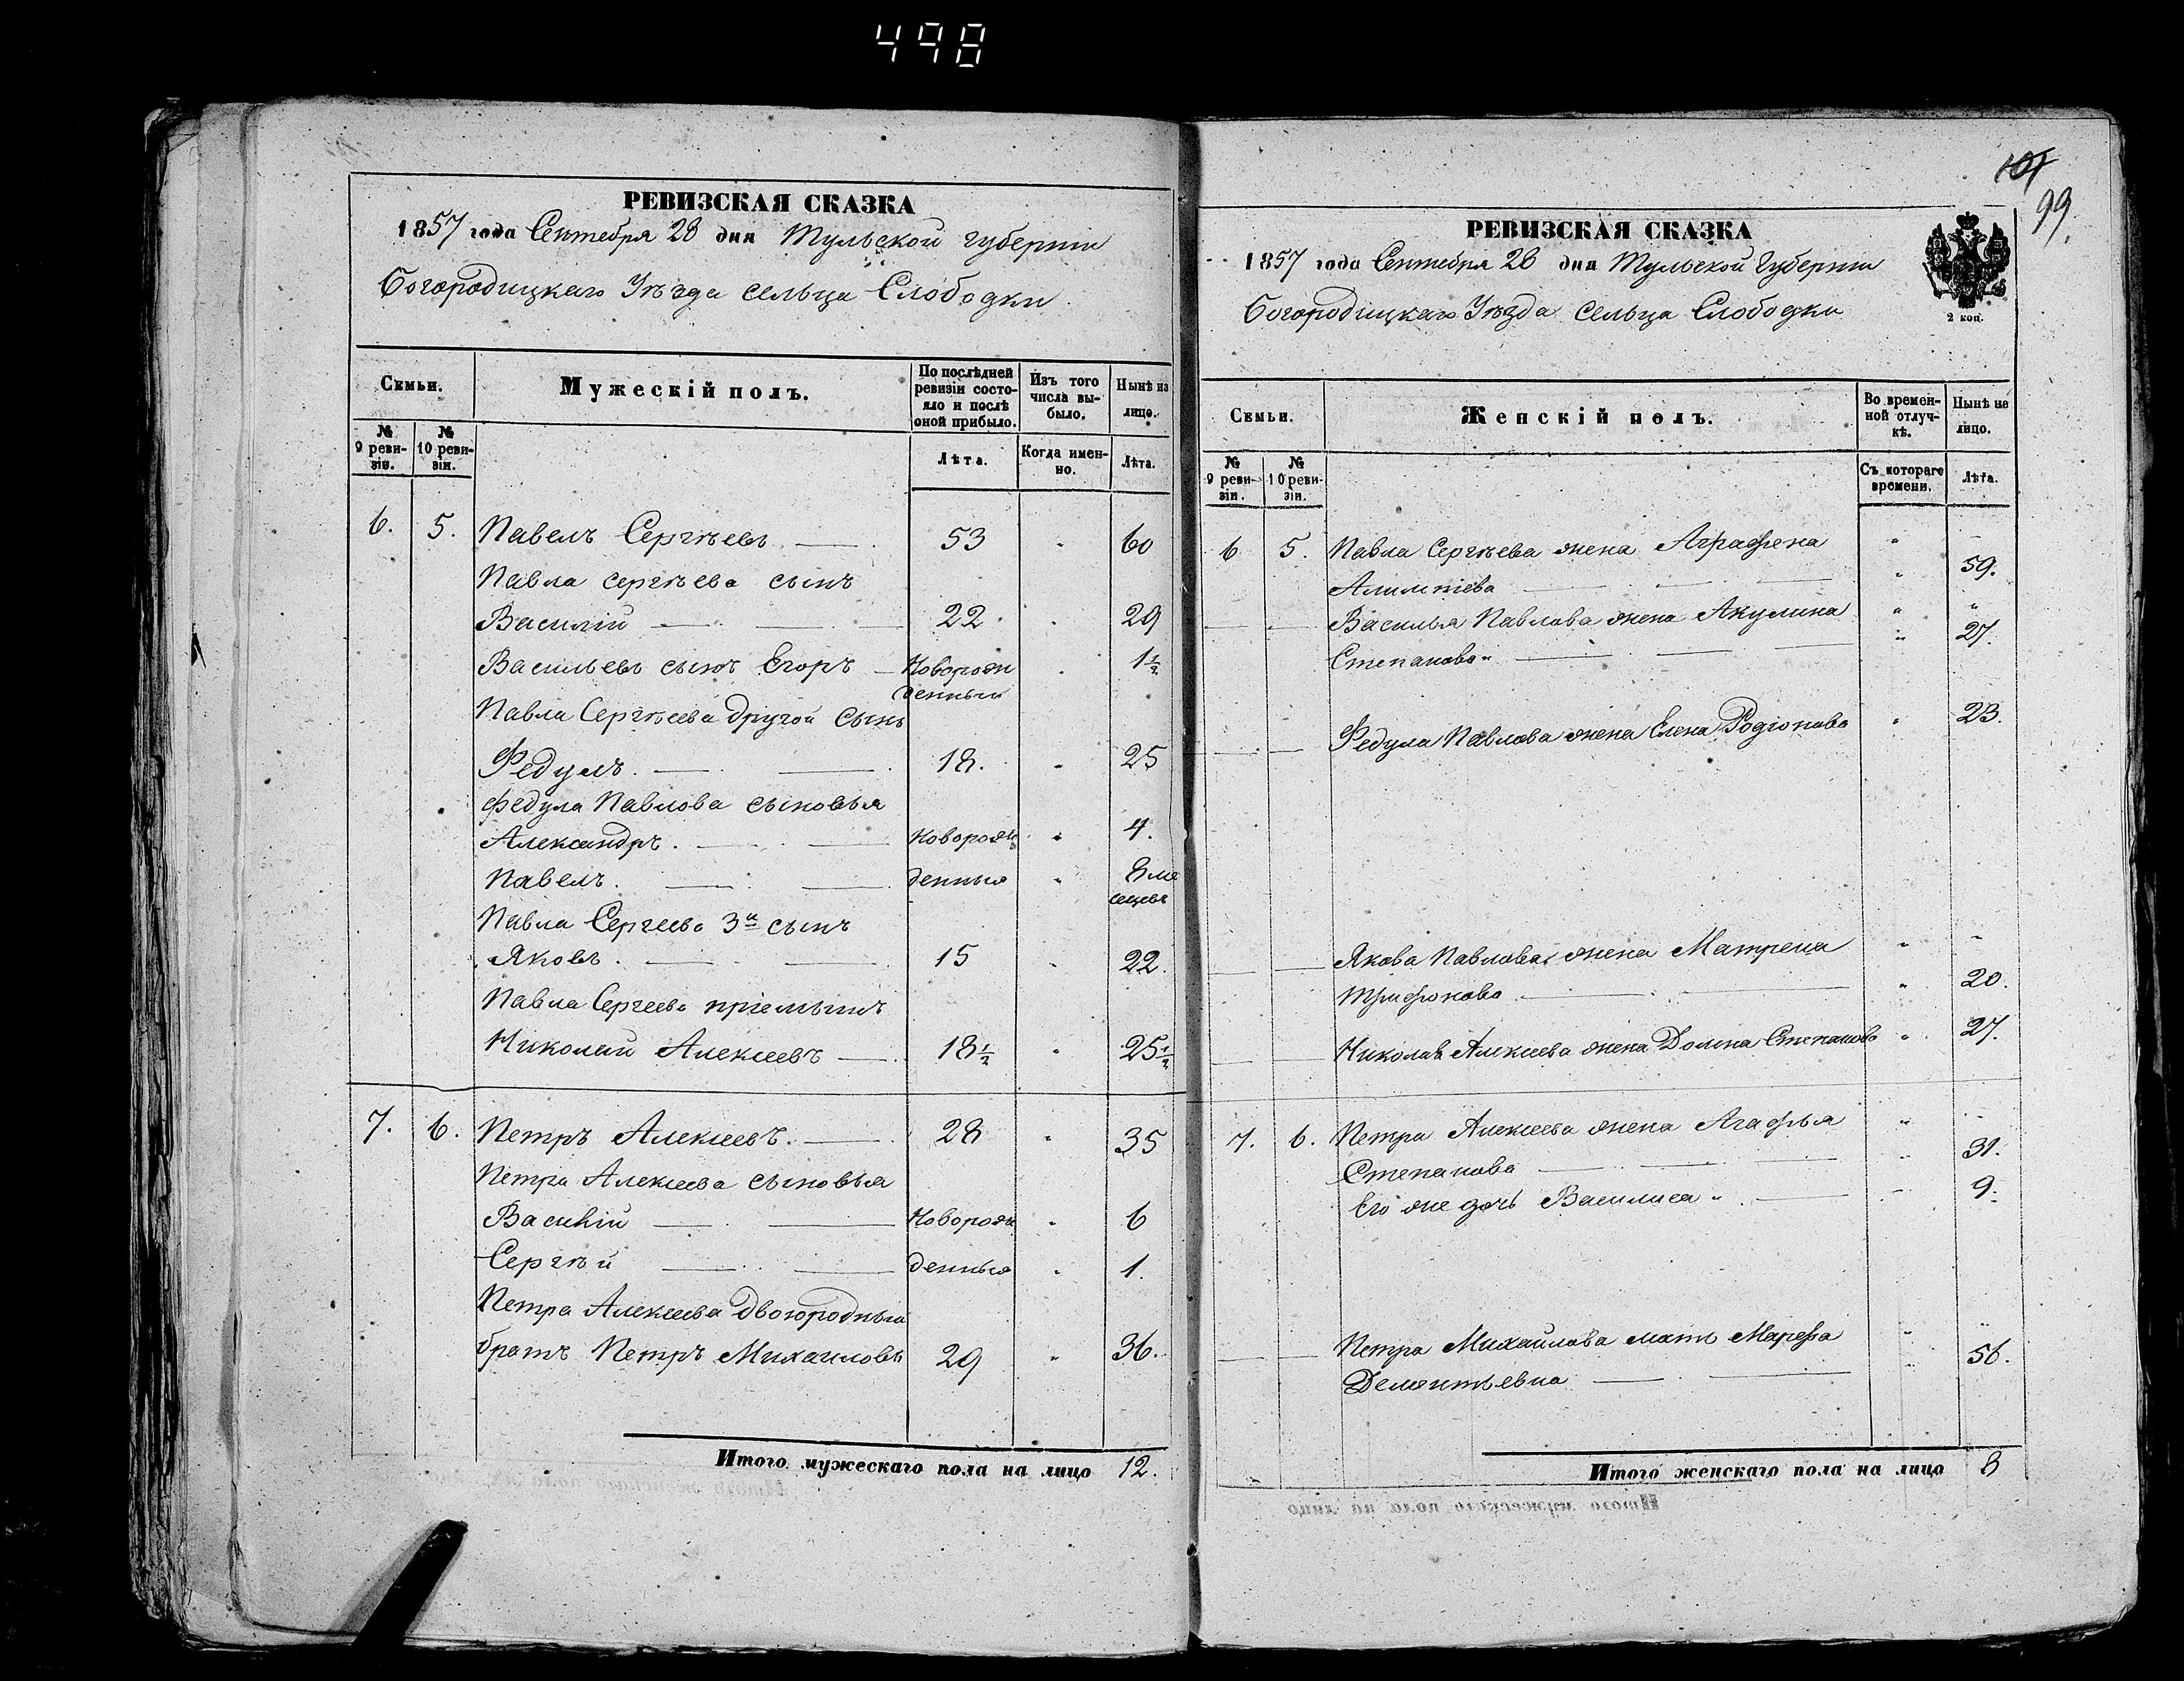 498
РЕВИЗСКАЯ СКАЗКА
1857 года Сентября 28 дня Тульской губернии
Богородицкаго Уѣзда сельца Слободки
Семьи.
Мужескій полъ.
По послѣдней ревизіи состояло и послѣ оной прибыло.
Изъ того числа выбыло.
Нынѣ на лицо.
№ 9 ревизіи.
№ 10 ревизіи.
Лѣта.
Когда именно.
Лѣта.
6. 5. Павелъ Сергѣевъ 53 " 60
Павла Сергѣева сынъ
Василій 22 29
Васильевъ сынъ Егоръ Новорожденный 1½
Павла Сергѣева другой сынъ
Федулъ. 18. 25
Федула Павлова сыновья
Александръ. Новорож 4.
Павелъ. денныя 8 месецевъ
Павла Сергеева 3й сынъ
Яковъ. 15 22.
Павла Сергеева пріемышъ
Николай Алексеевъ 18½ 25½
7. 6. Петръ Алексеевъ. 28 " 35
Петра Алексеева сыновья
Василій Новорож 6
Сергѣй денныя 1.
Петра Алексеева двоюродный
братъ Петръ Михаиловъ 29 " 36.
Итого мужескаго пола на лицо 12.
101
99.
РЕВИЗСКАЯ СКАЗКА
1857 года Сентября 28 дня Тульской Губернии
Богородицкаго Уѣзда сельца Слободки
2 коп.
Семьи.
Женскій полъ.
Во временной отлучкѣ.
Нынѣ на лицо.
№ 9 ревизіи.
№ 10 ревизіи.
Съ котораго времени.
Лѣта.
6 5. Павла Сергѣева жена Аграфена "
Алимпіева " 59.
Василья Павлова жена Акулина "
Степанова " 27.
Федула Павлова жена Елена Родіонова " 23.
Якова Павлова жена Матрена "
Трифонова " 20.
Николая Алексеева жена Домна Степанова " 27.
7. 6. Петра Алексеева жена Агафья "
Степанова " 31.
Его же дочь Василиса " 9.
Петра Михайлова мать Марфа "
Дементьевна " 56.
Итого женскаго пола на лицо 8